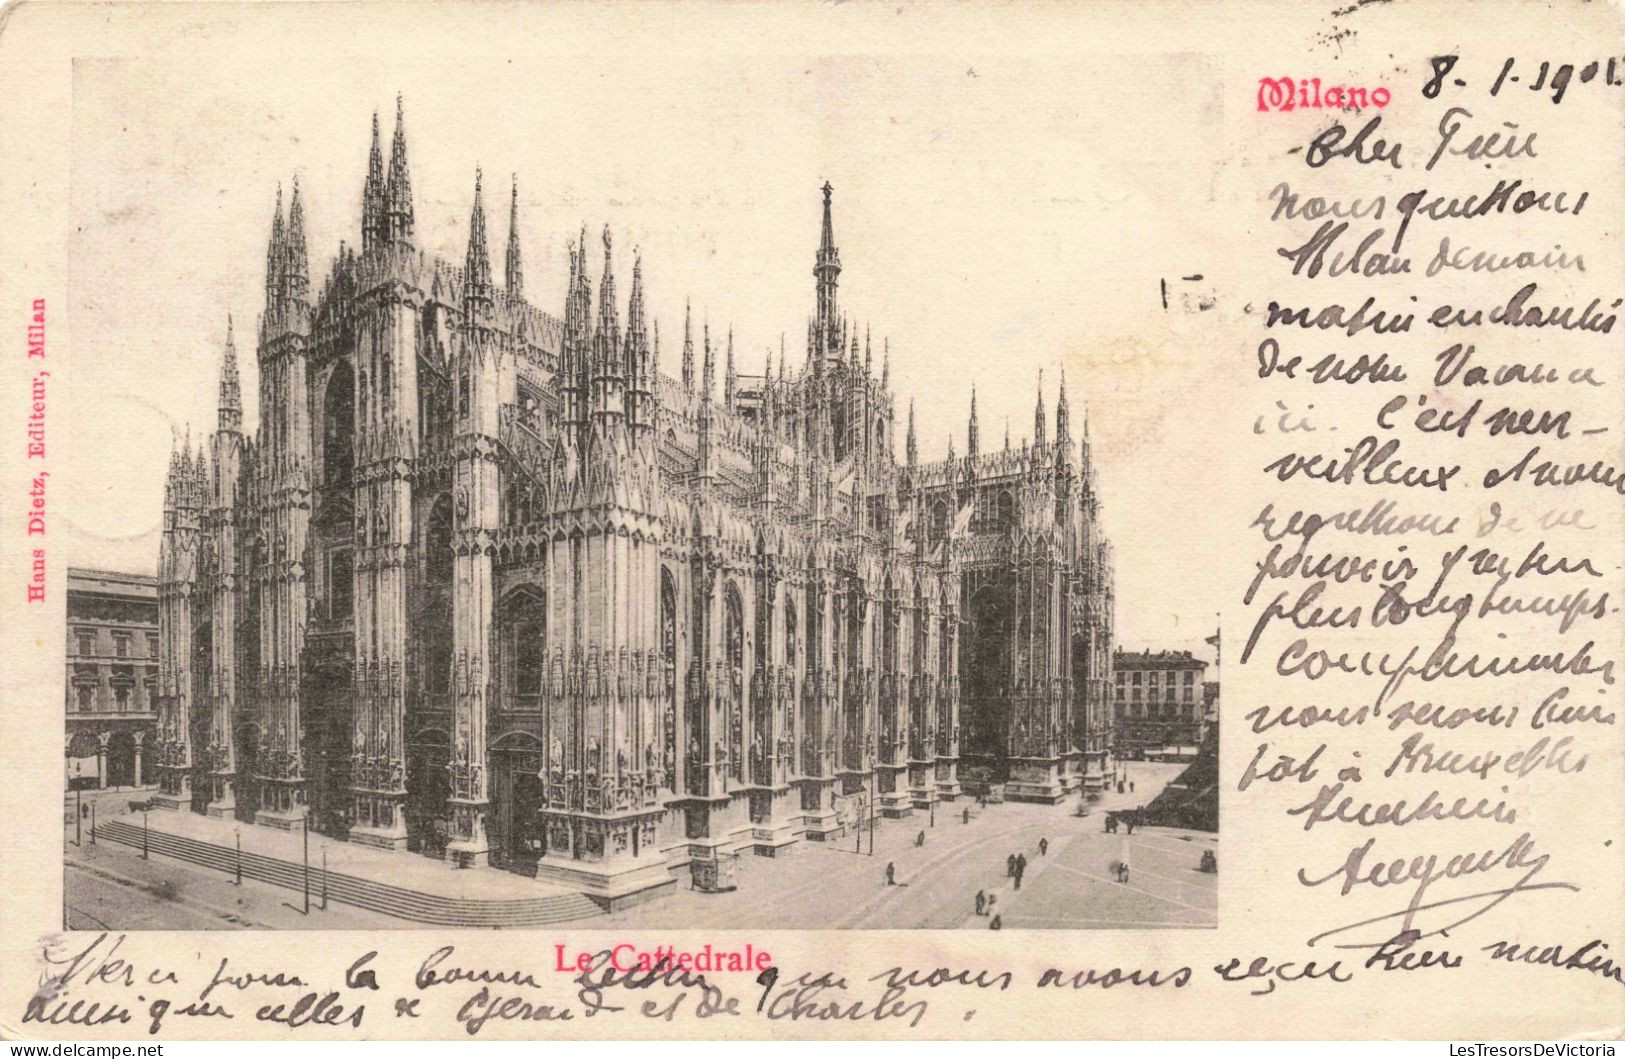 Milano 8-1-1901.
Cher Frère
nous quittons
Milan demain
matin enchantés
de notre Vacance
ici. C'est mer-
veilleux et nous
regrettons de ne
pouvoir y rester
plus longtemps.
Compliments
nous serons bien
tôt à Bruxelles
Auguste
Hans Dietz, Editeur, Milan
Le Cattedrale
Merci pour la bonne lettre que nous avons reçu hier matin
ainsi que celles de Gérard et de Charles.
LesTresorsDeVictoria
www.delcampe.net